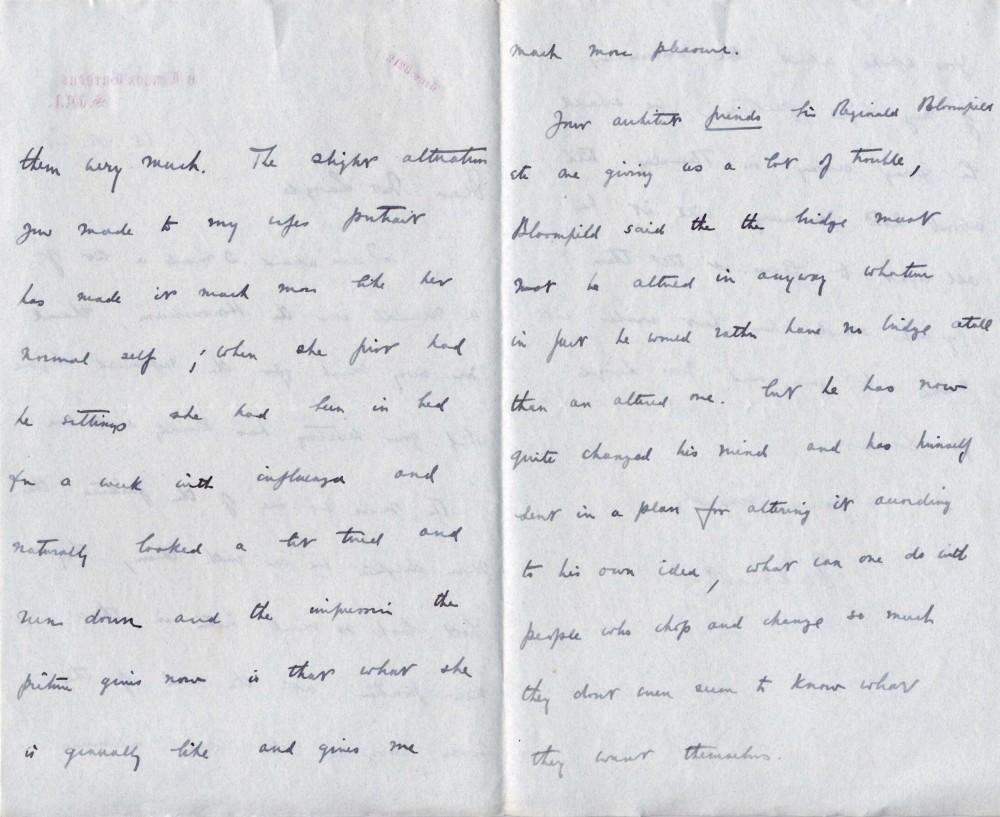 them very much. The slight alteration
you made to my wifes portrait
has made it much more like her
normal self; when she first had
he sittings she had been in bed
for a week with influenza and
naturally looked a bit tired and
run down and the impression the
picture gives now is that what she
is generally like and gives me
much more pleasure.
Your architect friends Sir Reginald Bloomfield
etc are giving us a lot of trouble,
Bloomfield said the the bridge must
not be altered in anyway whatever
in fact he would rather have no bridge atall
than an altered one. but he has now
quite changed his mind and has himself
sent in a plan for altering it according
to his own idea, what can one do with
people who chop and change so much
they dont even seem to know what
they want themselves.